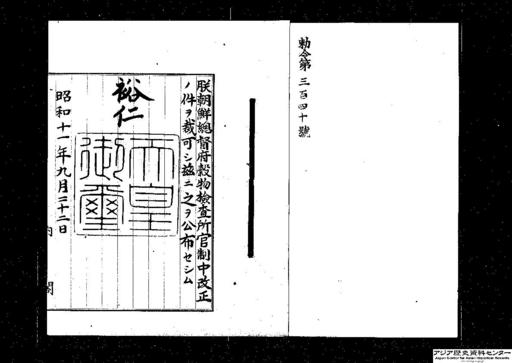 勅令第三百四十號
朕朝鮮總督府穀物檢査所官制中改正
ノ件ヲ裁可シ茲ニ之ヲ公布セシム
裕仁
天皇御璽
昭和十一年九月二十二日
内閣
アジア歴史資料センター
Japan Center for Asian Historical Records